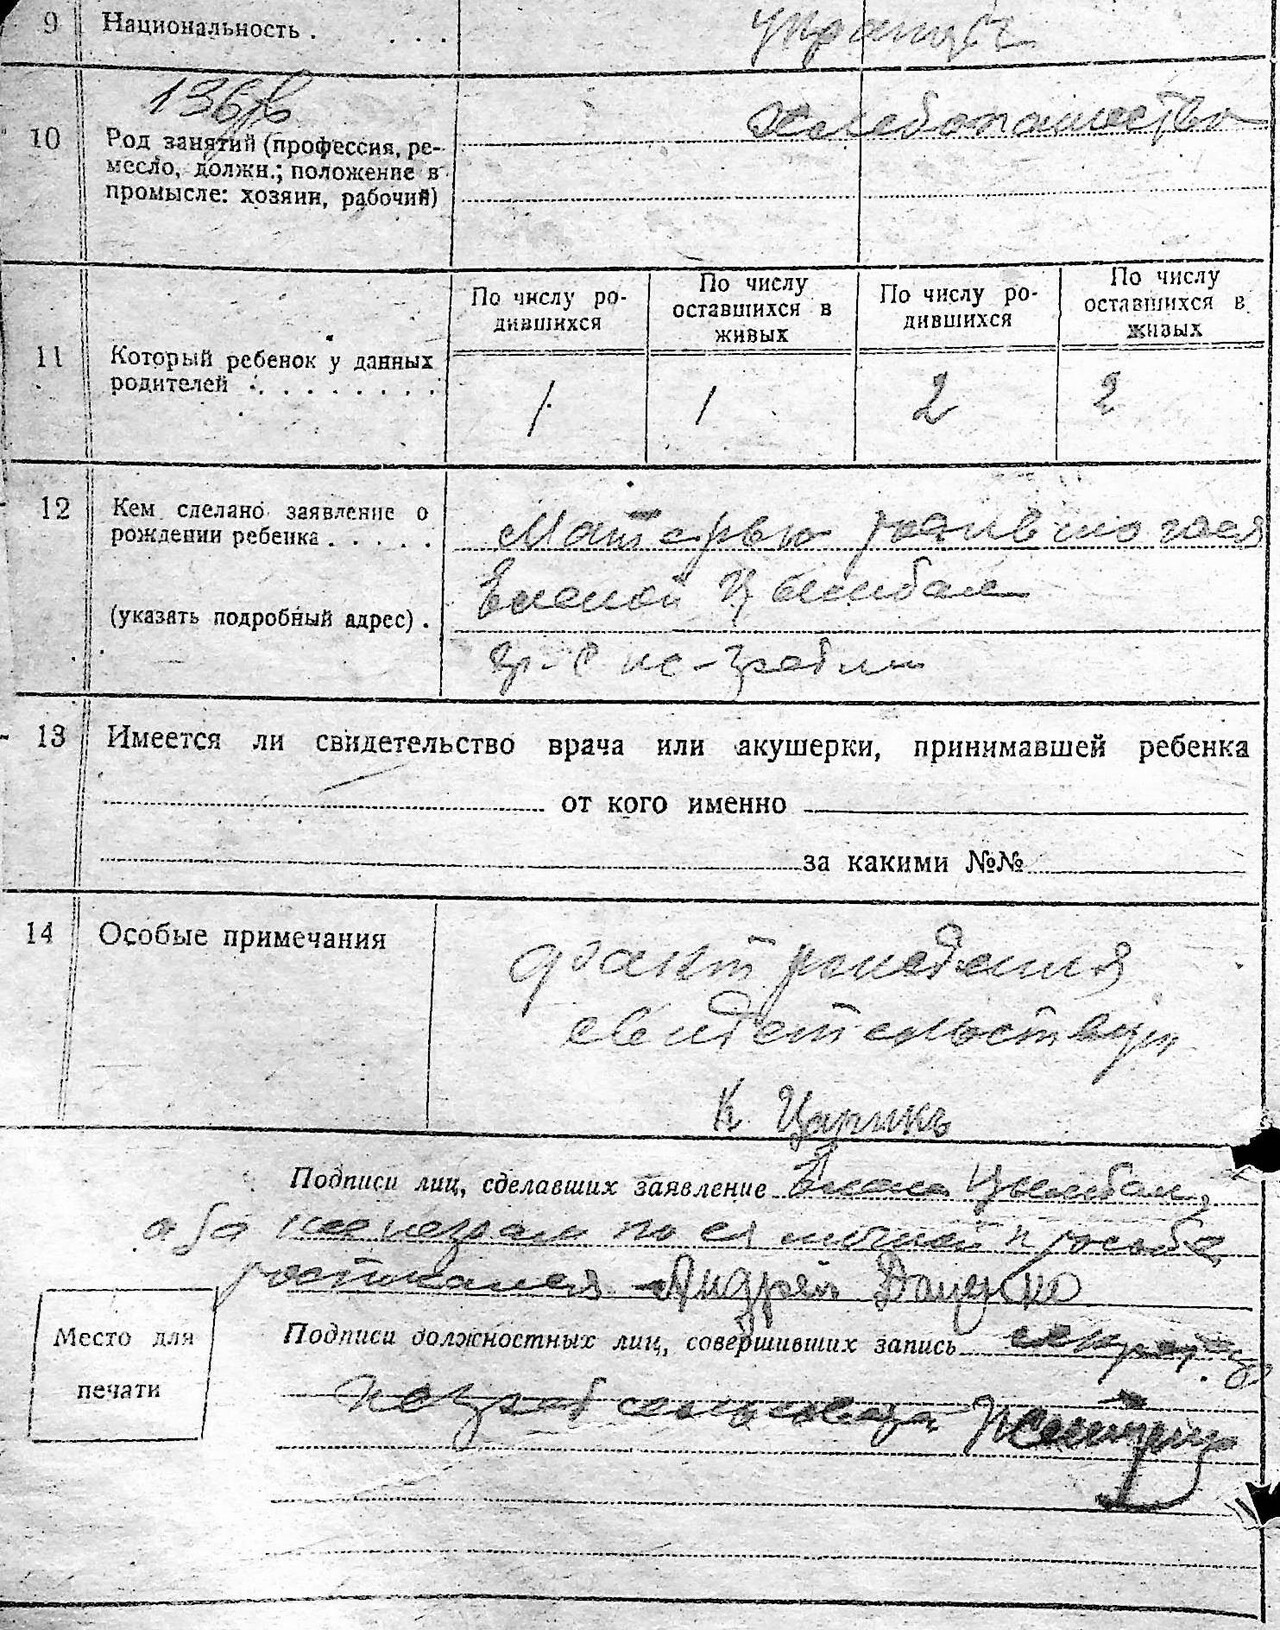 9 Национальность . . . .
10 Род занятий (профессия, ре-
месло, должн.; положение в
промысле: хозяин, рабочий)
хлебопашество
11 Который ребенок у данных
родителей . . . . . . . . .
По числу ро-
дившихся
По числу
оставшихся в
живых
По числу ро-
дившихся
По числу
оставшихся в
живых
1 1 2 2
12 Кем сделано заявление о
рождении ребенка . . . . .
(указать подробный адрес) .
Матерью родившогося
Еленой Цымбал
13 Имеется ли свидетельство врача или акушерки, принимавшей ребенка
от кого именно
за какими №№
14 Особые примечания
факт рождения
свидетельствую
К Царикъ
Подписи лиц, сделавших заявление Елена Цымбал,
а за неграм по ея личной просьбе
Андрей Доценко
Подписи должностных лиц, совершивших запись секретарь
сельсовета
Место для
печати